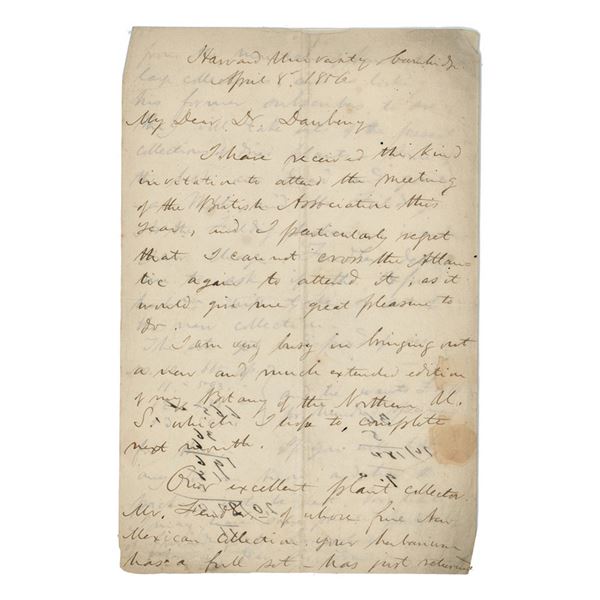 Harvard University Cambridge
April 8. 1856
My Dear Dr. Daubeny
I have received the kind
invitation to attend the meeting
of the British Association this
Year, and I particularly regret
that I can not cross the Atlan-
tic again to attend it, as it
would give me great pleasure to
do.
I am very busy in bringing out
a new and much extended edition
of my Botany of the Northern U.
S. which I hope to complete
next month.
Our excellent plant collector
Mr. Fendler of whose fine New
Mexican collection your herbarium
has a full set - has just returned